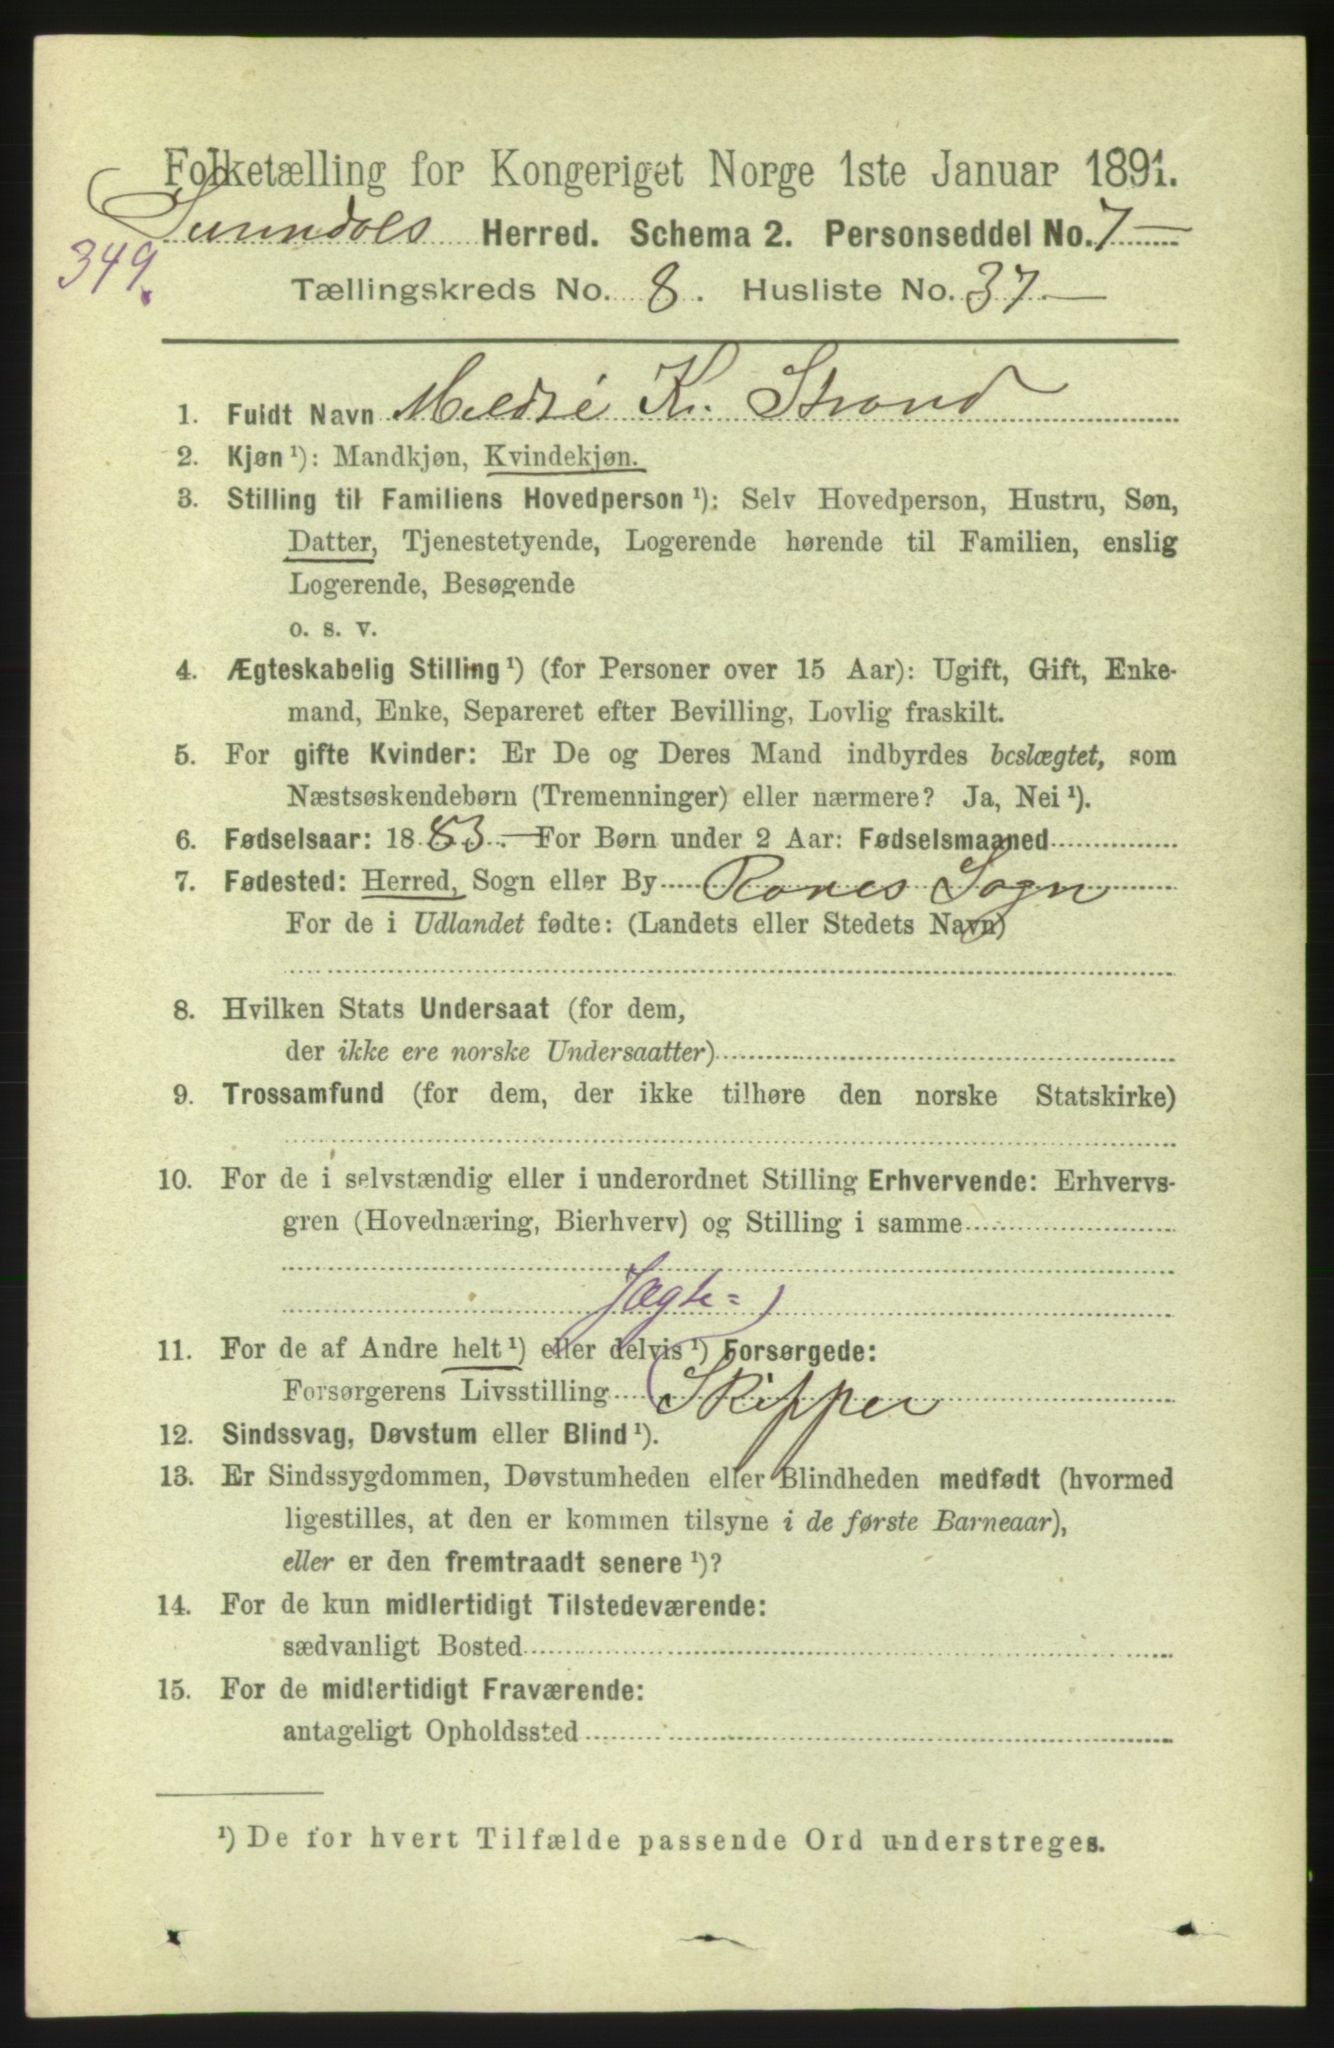 Folketælling for Kongeriget Norge 1ste Januar 1891.
Sunndals Herred. Schema 2. Personseddel No. 7
349.
Tællingskreds No. 8. Husliste No. 37
1. Fuldt Navn Meldré K. Strand
2. Kjøn ¹): Mandkjøn, Kvindekjøn.
3. Stilling til Familiens Hovedperson ¹): Selv Hovedperson, Hustru, Søn,
Datter, Tjenestetyende, Logerende hørende til Familien, enslig
Logerende, Besøgende
o. s. v.
4. Ægteskabelig Stilling ¹) (for Personer over 15 Aar): Ugift, Gift, Enke-
mand, Enke, Separeret efter Bevilling, Lovlig fraskilt.
5. For gifte Kvinder: Er De og Deres Mand indbyrdes beslægtet, som
Næstsøskendebørn (Tremenninger) eller nærmere? Ja, Nei ¹).
6. Fødselsaar: 1883. For Børn under 2 Aar: Fødselsmaaned
7. Fødested: Herred, Sogn eller By Ranes Sogn
For de i Udlandet fødte: (Landets eller Stedets Navn)
8. Hvilken Stats Undersaat (for dem,
der ikke ere norske Undersaatter)
9. Trossamfund (for dem, der ikke tilhøre den norske Statskirke)
10. For de i selvstændig eller i underordnet Stilling Erhvervende: Erhvervs-
gren (Hovednæring, Bierhverv) og Stilling i samme
Jægte=)
11. For de af Andre helt ¹) eller delvis ¹) Forsørgede:
Forsørgerens Livsstilling (Skipper
12. Sindssvag, Døvstum eller Blind ¹).
13. Er Sindssygdommen, Døvstumheden eller Blindheden medfødt (hvormed
ligestilles, at den er kommen tilsyne i de første Barneaar),
eller er den fremtraadt senere ¹)?
14. For de kun midlertidigt Tilstedeværende:
sædvanligt Bosted
15. For de midlertidigt Fraværende:
antageligt Opholdssted
¹) De for hvert Tilfælde passende Ord understreges.